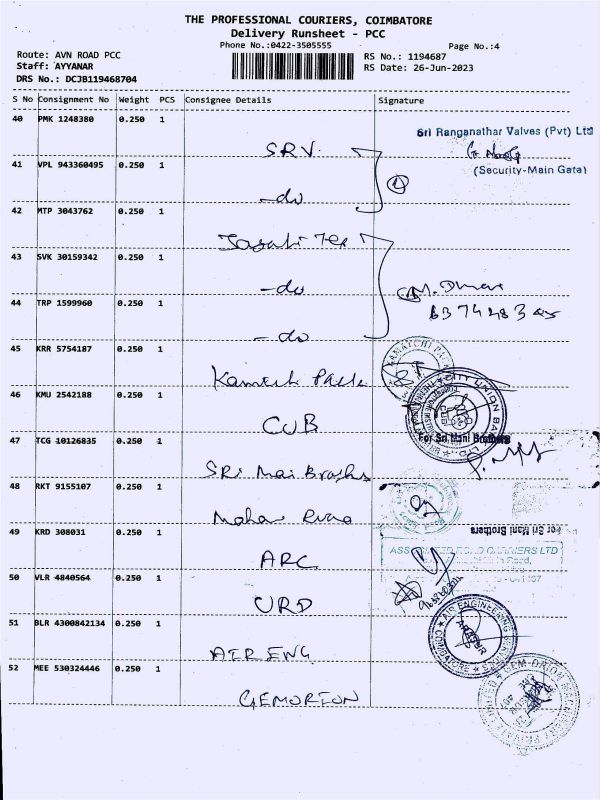 THE PROFESSIONAL COURIERS, COIMBATORE
Delivery Runsheet - PCC
Phone No.:0422-3505555
Page No.:4
Route: AVN ROAD PCC
RS No.: 1194687
Staff: AYYANAR
RS Date: 26-Jun-2023
DRS No.: DCJB119468704
S No Consignment No Weight PCS Consignee Details Signature
40 PMK 1248380 0.250 1
Sri Ranganathar Valves (Pvt) Ltd
(Security-Main Gate)
SRV
41 VPL 943360495 0.250 1
-do
42 MTP 3043762 0.250 1
43 SVK 30159342 0.250 1
-do
44 TRP 1599960 0.250 1
-do
45 KRR 5754187 0.250 1
46 KMU 2542188 0.250 1
CITY UNION BANK
CUB
For Sri Mani Brothers
47 TCG 10126835 0.250 1
SRi Mai
48 RKT 9155107 0.250 1
Mohan
For Sri Mani Brothers
49 KRD 308031 0.250 1
ARC
ASSOCIATED ROAD CARRIERS LTD
50 VLR 4840564 0.250 1
URD
51 BLR 4300842134 0.250 1
AIR ENG
AIR ENGINEERING
COIMBATORE
52 MEE 530324446 0.250 1
GEMORION